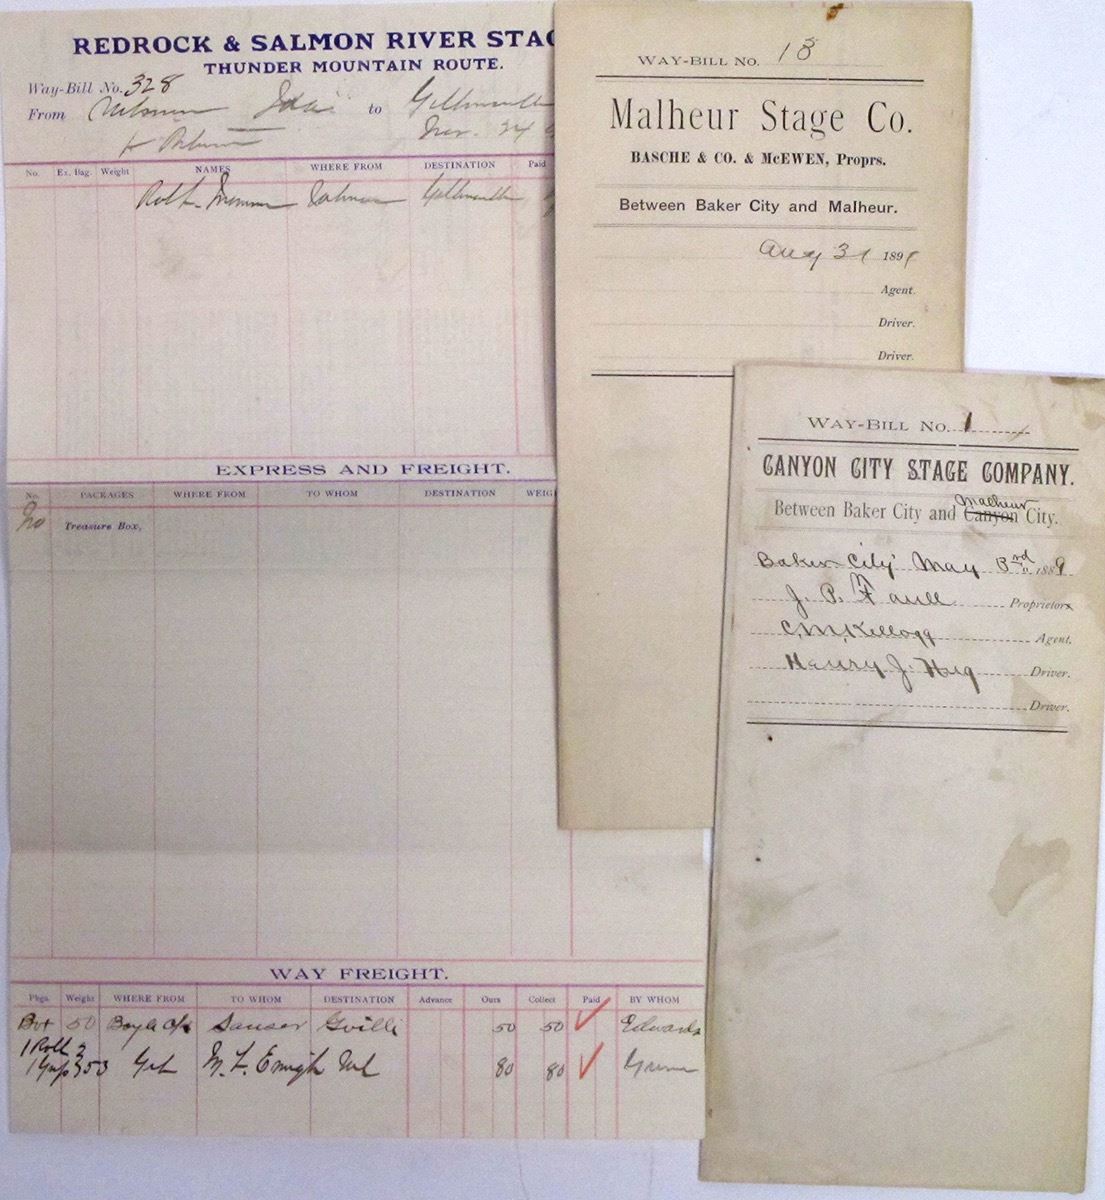 REDROCK & SALMON RIVER STAG
THUNDER MOUNTAIN ROUTE.
Way-Bill No. 328
From to
Nov. 24
No. Ex. Bag. Weight NAMES WHERE FROM DESTINATION Paid
Salmon
EXPRESS AND FREIGHT.
No. PACKAGES WHERE FROM TO WHOM DESTINATION WEIG
No Treasure Box,
WAY FREIGHT.
Pkgs. Weight WHERE FROM TO WHOM DESTINATION Advance Ours Collect Paid BY WHOM
50 Gville 50 50 Edwards
1 Roll
80 80
WAY-BILL NO. 18
Malheur Stage Co.
BASCHE & CO. & McEWEN, Proprs.
Between Baker City and Malheur.
Aug 31 1891
Agent.
Driver.
Driver.
WAY-BILL NO. 1
CANYON CITY STAGE COMPANY.
Malheur
Between Baker City and Canyon City.
Baker City May 3rd 1889
J. P. Faull Proprietors
C. M. Kellogg Agent.
Henry J. Hug Driver.
Driver.